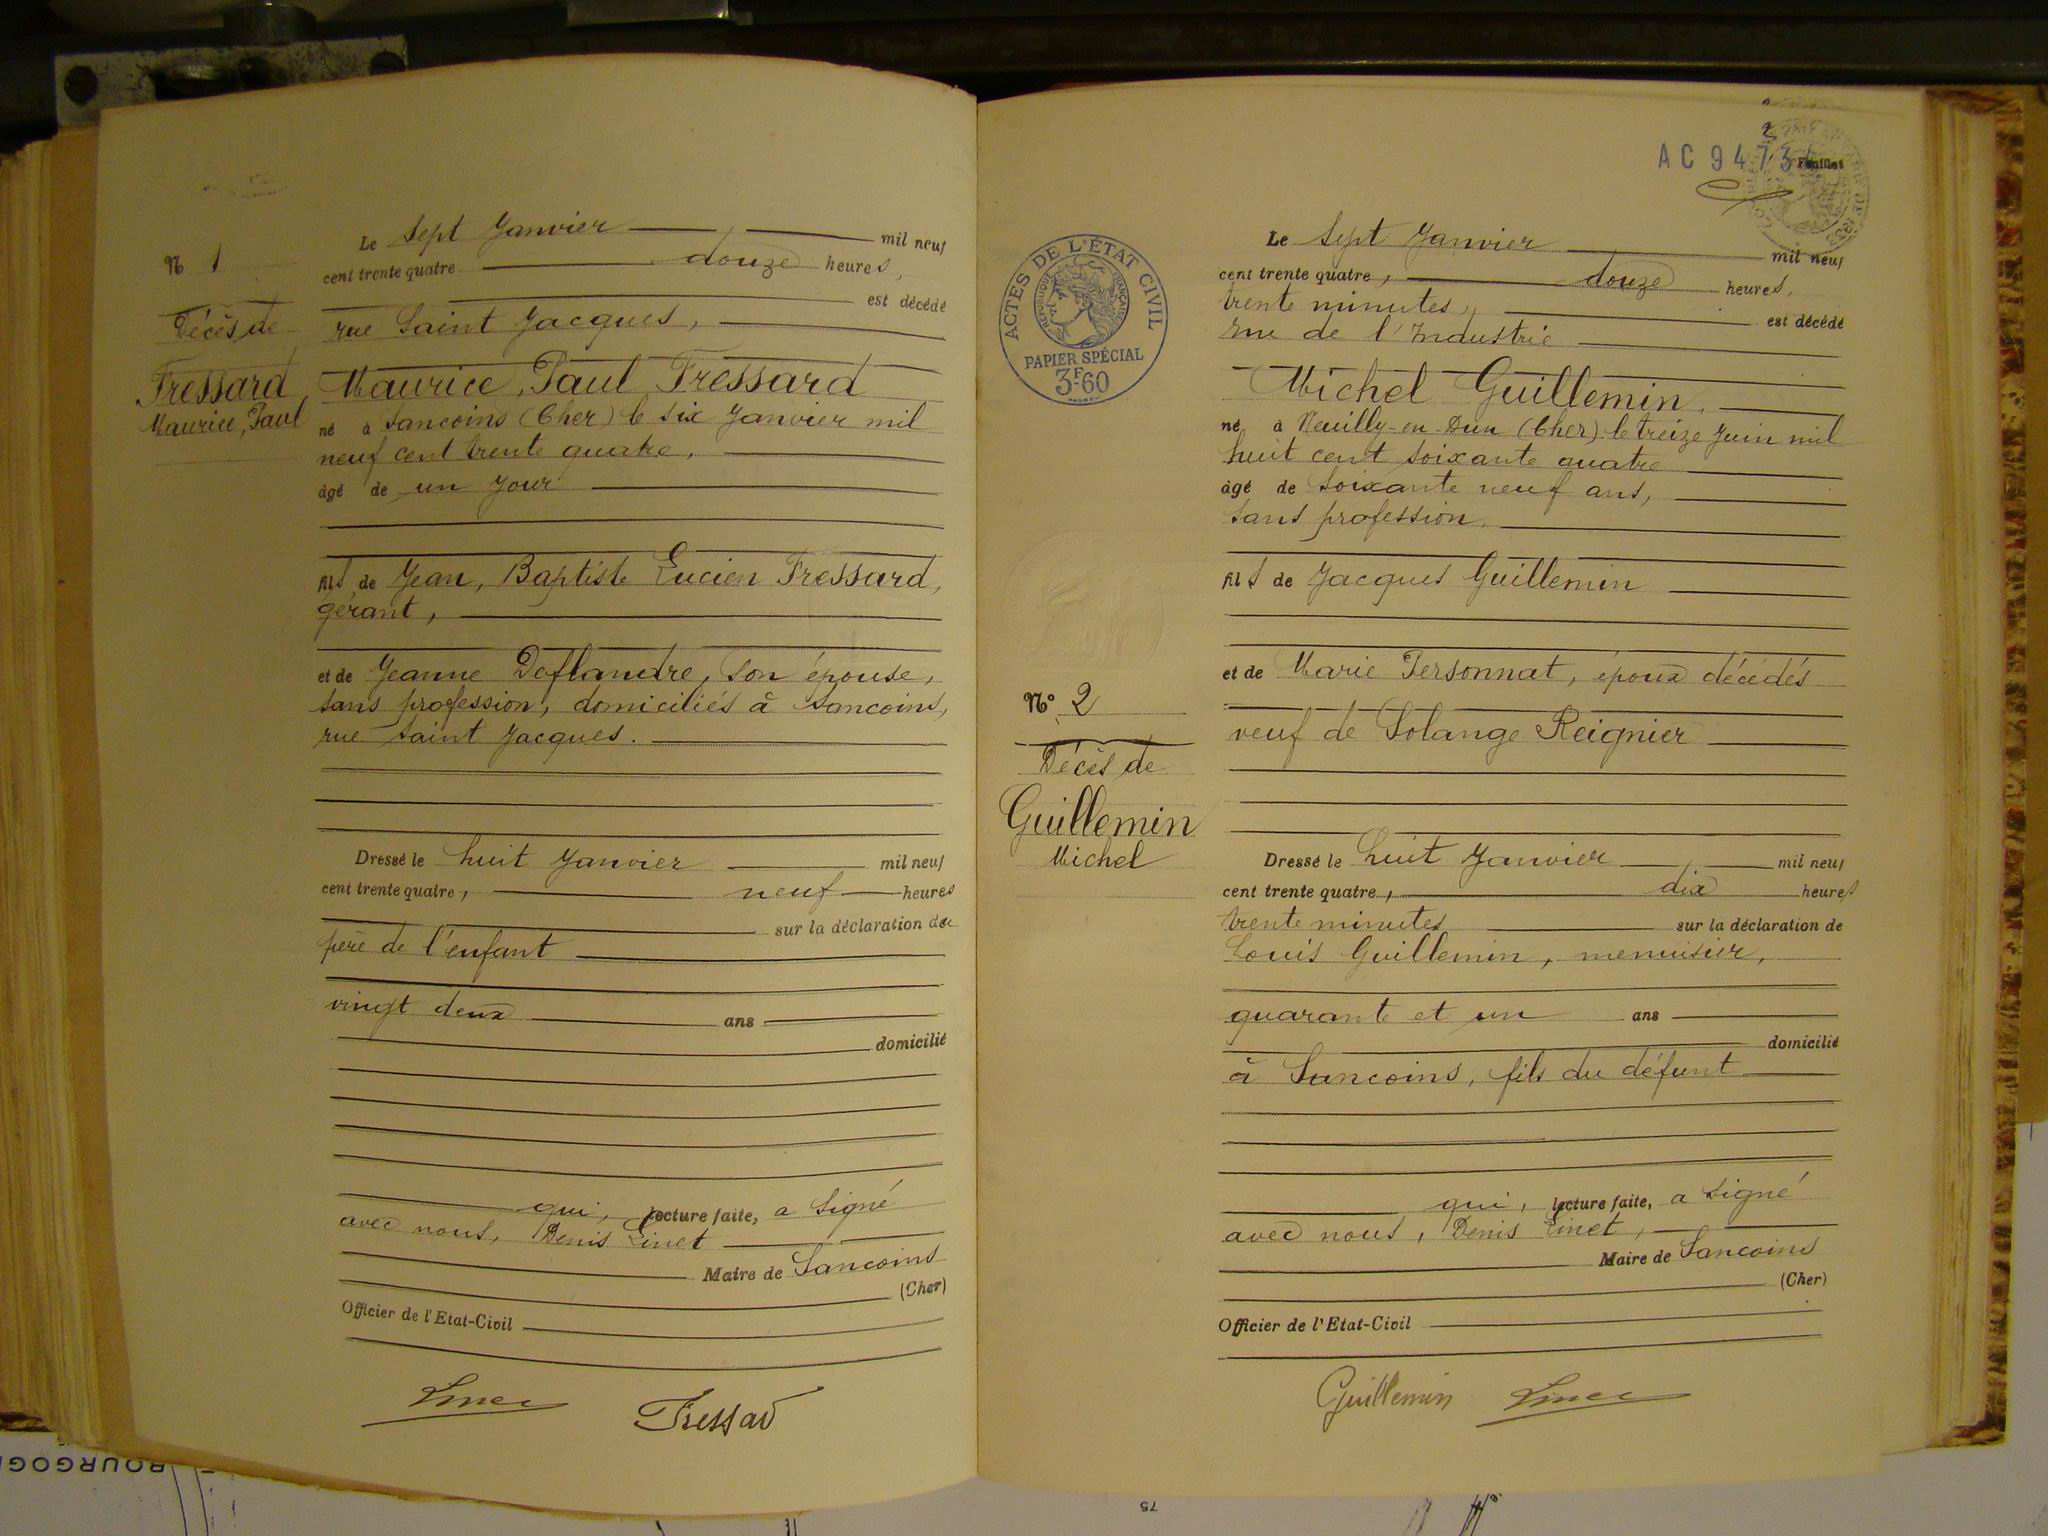 N 1
Décès de
Fressard
Maurice, Paul
Le sept Janvier mil neuf
cent trente quatre douze heures,
est décédé
rue Saint Jacques,
Maurice, Paul Fressard
né à Sancoins (Cher) le six Janvier mil
neuf cent trente quatre,
âgé de un jour
fils de Jean, Baptiste Lucien Fressard,
gérant,
et de Jeanne Deflandre, son épouse,
sans profession, domiciliés à Sancoins,
rue Saint Jacques.
Dressé le huit Janvier mil neuf
cent trente quatre, neuf heures
sur la déclaration du
père de l'enfant
vingt deux ans
domicilié
qui, lecture faite, a signé
avec nous, Denis Linet
Maire de Sancoins
(Cher)
Officier de l'Etat-Civil
Fressard
2
AC 9473 Feuillet
ACTES DE L'ÉTAT CIVIL
RÉPUBLIQUE FRANÇAISE
PAPIER SPÉCIAL
3F60
N° 2
Décès de
Guillemin
Michel
Le sept Janvier mil neuf
cent trente quatre, douze heures,
trente minutes, est décédé
rue de l'Industrie
Michel Guillemin,
né à Neuilly-en-Dun (Cher) le treize Juin mil
huit cent soixante quatre
âgé de soixante neuf ans,
sans profession,
fils de Jacques Guillemin
et de Marie Personnat, époux décédés
veuf de Solange Reignier
Dressé le huit Janvier mil neuf
cent trente quatre, dix heures
trente minutes sur la déclaration de
Louis Guillemin, menuisier,
quarante et un ans
domicilié
à Sancoins, fils du défunt
qui, lecture faite, a signé
avec nous, Denis Linet,
Maire de Sancoins
(Cher)
Officier de l'Etat-Civil
Guillemin
BOURGOG
75